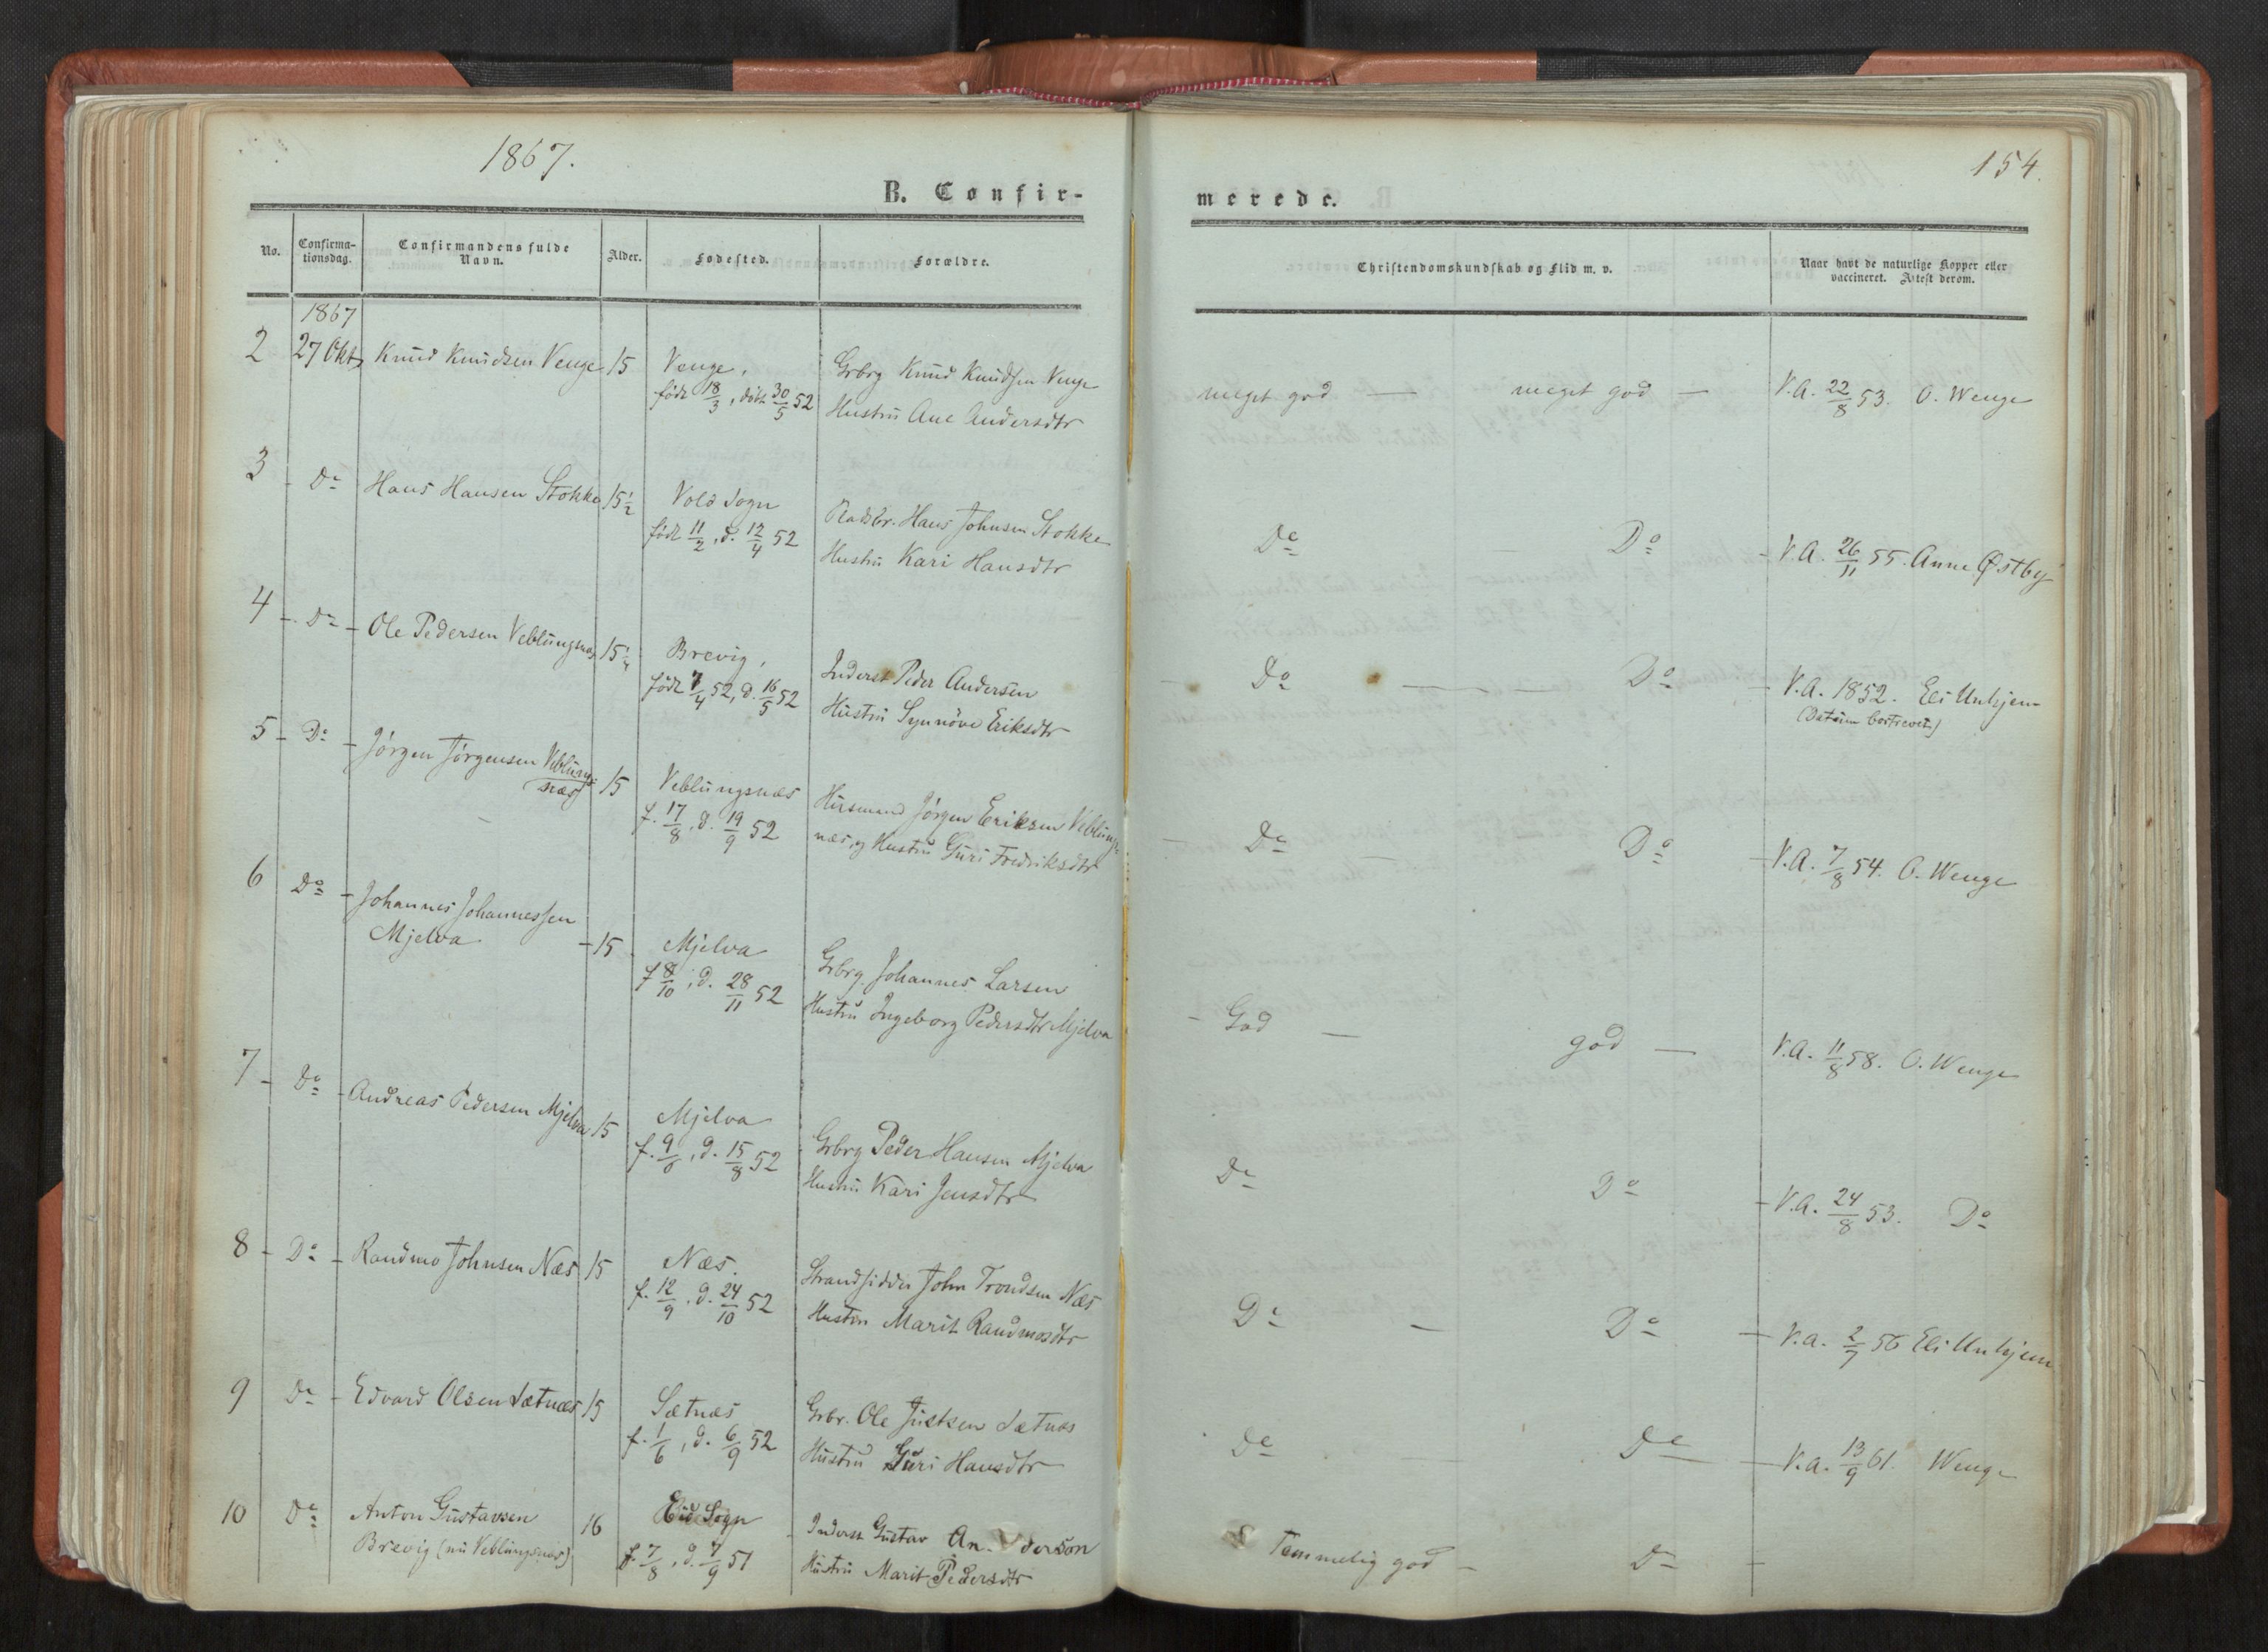 1867.
154.
B. Confir-
merede.
No.
Confirma-
tionsdag.
Confirmandens fulde
Navn.
Alder.
Fødested.
Forældre.
Christendomskundskab og Flid m. v.
Naar havt de naturlige Kopper eller
vaccineret. Attest derom.
1867
2 27 Okt Knud Knudsen Venge 15 Venge, Grbrg Knud Knudsen Venge meget god — meget god — V.A. 22/8 53. O. Wenge
født 18/3, døbt 30/5 52 Hustru Ane Andersdtr
3 - Do Hans Hansen Stokke 15 1/2 Vold Sogn Pladsbr. Hans Johnsen Stokke Do — Do - V.A. 26/11 55. Anne Østby
født 11/2, d. 12/4 52 Hustru Kari Hansdtr
4 - Do - Ole Pedersen Veblungsnæs 15 1/2 Brevig, Inderst Peder Andersen Do — Do - V.A. 1852. Eli Unhjem
født 7/4 52, d. 16/5 52 Hustru Synnöve Eriksdtr (Datum bortrevet)
5 - Do - Jørgen Jørgensen Veblungs- 15 Veblungsnæs Husmand Jørgen Eriksen Veblungs- Do — Do - V.A. 7/8 54. O. Wenge
næs f. 17/8, d. 19/9 52 næs og Hustru Guri Fredriksdtr
6 Do - Johannes Johannessen
Mjelva - 15 Mjelva Grbrg. Johannes Larsen - God — god — V.A. 11/8 58. O. Wenge
f 8/10, d. 28/11 52 Hustru Ingeborg Pedersdtr Mjelva
7 - Do - Andreas Pedersen Mjelva 15 Mjelva Grbrg Peder Hansen Mjelva Do Do - V.A. 24/8 53. Do
f. 9/6, d. 15/8 52 Hustru Kari Jensdtr
8 - Do - Randmo Johnsen Næs 15 Næs. Strandsidder John Trondsen Næs Do — Do - V.a. 2/7 56 Eli Unhjem
f. 12/9, d. 24/10 52 Hustru Marit Randmosdtr
9 Do - Edvard Olsen Sætnæs 15 Sætnæs Grbr. Ole Justsen Sætnæs Do Do — V.a. 13/9 61. Wenge
f. 1/6, d. 6/9 52 Hustru Guri Hansdtr
10 Do Anton Gustavsen 16 Eid Sogn - Inderst Gustav Anderson Temmelig god - Do -
Brevig (nu Veblungsnæs) f. 7/8, d. 7/9 51 Hustru Marit Pedersdtr